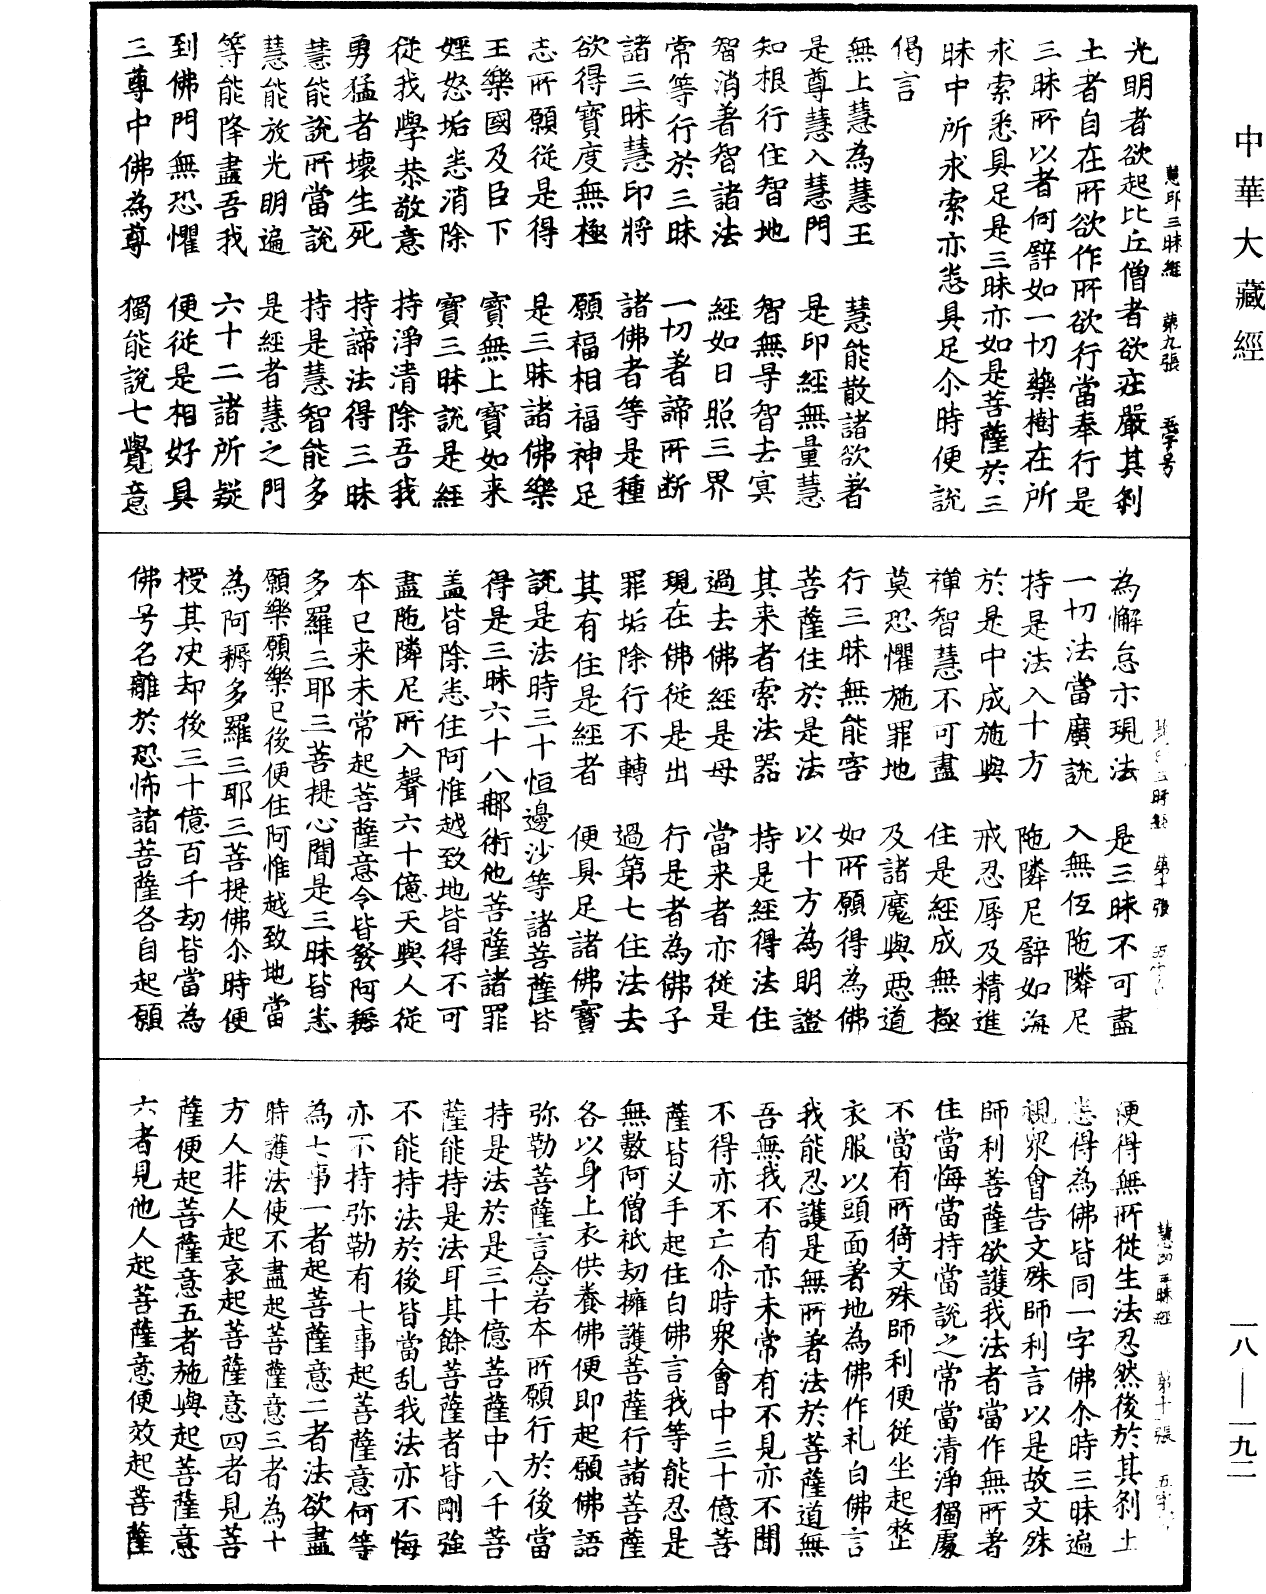 中華大藏經
慧印三昧經　第九張　五字号
光明者欲起比丘僧者欲㽵嚴其刹
土者自在所欲作所欲行當奉行是
三昧所以者何辟如一切藥樹在所
求索悉具足是三昧亦如是菩薩於三
昧中所求索亦悉具足尒時便說
偈言
無上慧為慧王　慧能散諸欲著
是尊慧入慧門　是印經無量慧
知根行住智地　智無㝵智去㝠
智消著智諸法　經如日照三界
常等行於三昧　一切著諦所断
諸三昧慧印將　諸佛者等是種
欲得寶度無極　願福相福神足
志所願從是得　是三昧諸佛樂
王樂國及臣下　寶無上寶如来
婬怒垢恚消除　寶三昧說是經
從我學恭敬意　持淨清除吾我
勇猛者壞生死　持諦法得三昧
慧能說所當說　持是慧智能多
慧能放光明遍　是經者慧之門
等能降盡吾我　六十二諸所疑
到佛門無恐懼　便從是相好具
三尊中佛為尊　獨能說七覺意
第十張
為懈怠亦現法　是三昧不可盡
一切法當廣說　入無㤚陁隣尼
持是法入十方　陁隣尼辟如海
於是中成施與　戒忍辱及精進
禪智慧不可盡　住是經成無極
莫恐懼施罪地　及諸魔與惡道
行三昧無能害　如所願得為佛
菩薩住於是法　以十方為明證
其来者索法器　持是經得法住
過去佛經是母　當来者亦從是
現在佛從是出　行是者為佛子
罪垢除行不轉　過第七住法去
其有住是經者　便具足諸佛寶
說是法時三十恒邊沙等諸菩薩皆
得是三昧六十八那術他菩薩諸罪
盖皆除悉住阿惟越致地皆得不可
盡陁隣尼所入聲六十億天與人從
本已来未常起菩薩意令皆發阿耨
多羅三耶三菩提心聞是三昧皆悉
願樂願樂已後便住阿惟越致地當
為阿耨多羅三耶三菩提佛尒時便
授其决却後三十億百千劫皆當為
佛号名離於恐怖諸菩薩各自起願
慧印三昧經　第十一張
便得無所從生法忍然後於其刹土
悉得為佛皆同一字佛尒時三昧遍
視衆會告文殊師利言以是故文殊
師利菩薩欲護我法者當作無所著
住當悔當持當說之常當清淨獨處
不當有所猗文殊師利便從坐起整
衣服以頭面著地為佛作礼白佛言
我能忍護是無所著法於菩薩道無
吾無我不有亦未常有不見亦不聞
不得亦不亡尒時衆會中三十億菩
薩皆叉手起住白佛言我等能忍是
無數阿僧祇劫擁護菩薩行諸菩薩
各以身上衣供養佛便即起願佛語
弥勒菩薩言念若本所願行於後當
持是法於是三十億菩薩中八千菩
薩能持是法耳其餘菩薩者皆剛強
不能持法於後皆當乱我法亦不悔
亦不持弥勒有七事起菩薩意何等
為七事一者起菩薩意二者法欲盡
時護法使不盡起菩薩意三者為十
方人非人起哀起菩薩意四者見菩
薩便起菩薩意五者施與起菩薩意
六者見他人起菩薩意便效起菩薩
一八——一九二